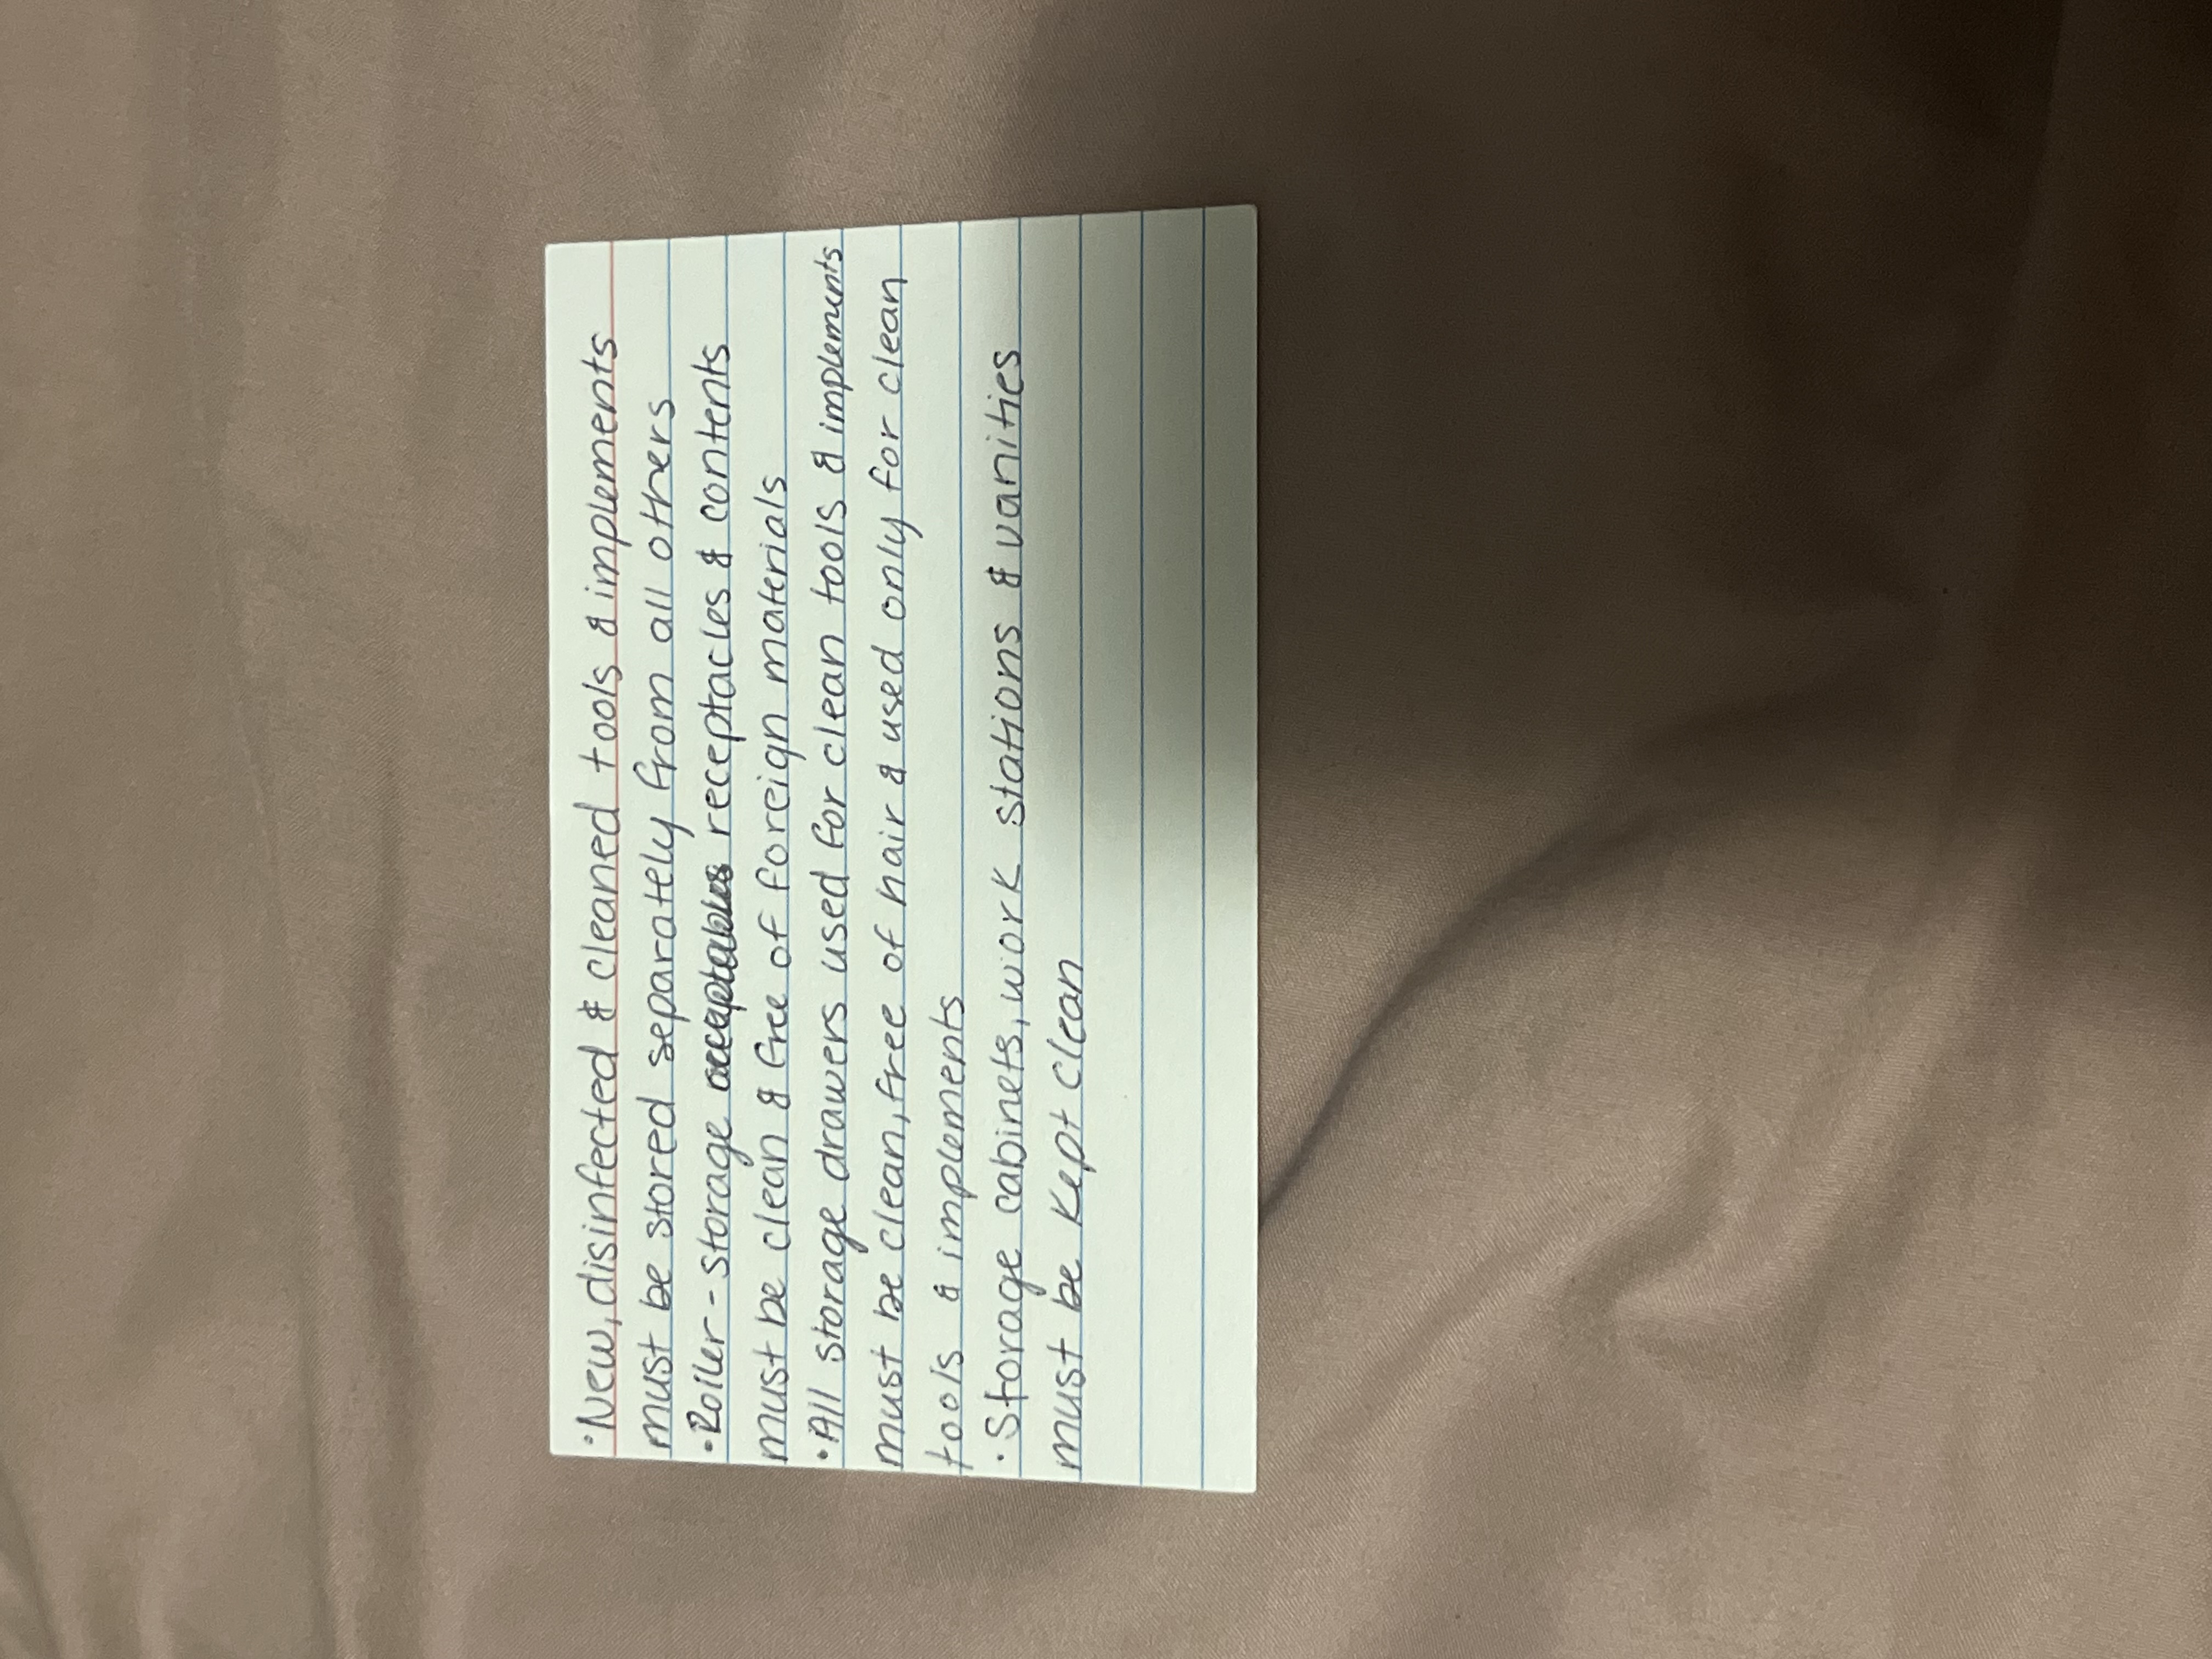 · New, disinfected & cleaned tools & implements
must be stored separately from all others
· Roller - storage receptacles & contents
must be clean & free of foreign materials
· All storage drawers used for clean tools & implements
must be clean, free of hair & used only for clean
tools & implements
· Storage cabinets, work stations & vanities
must be kept clean